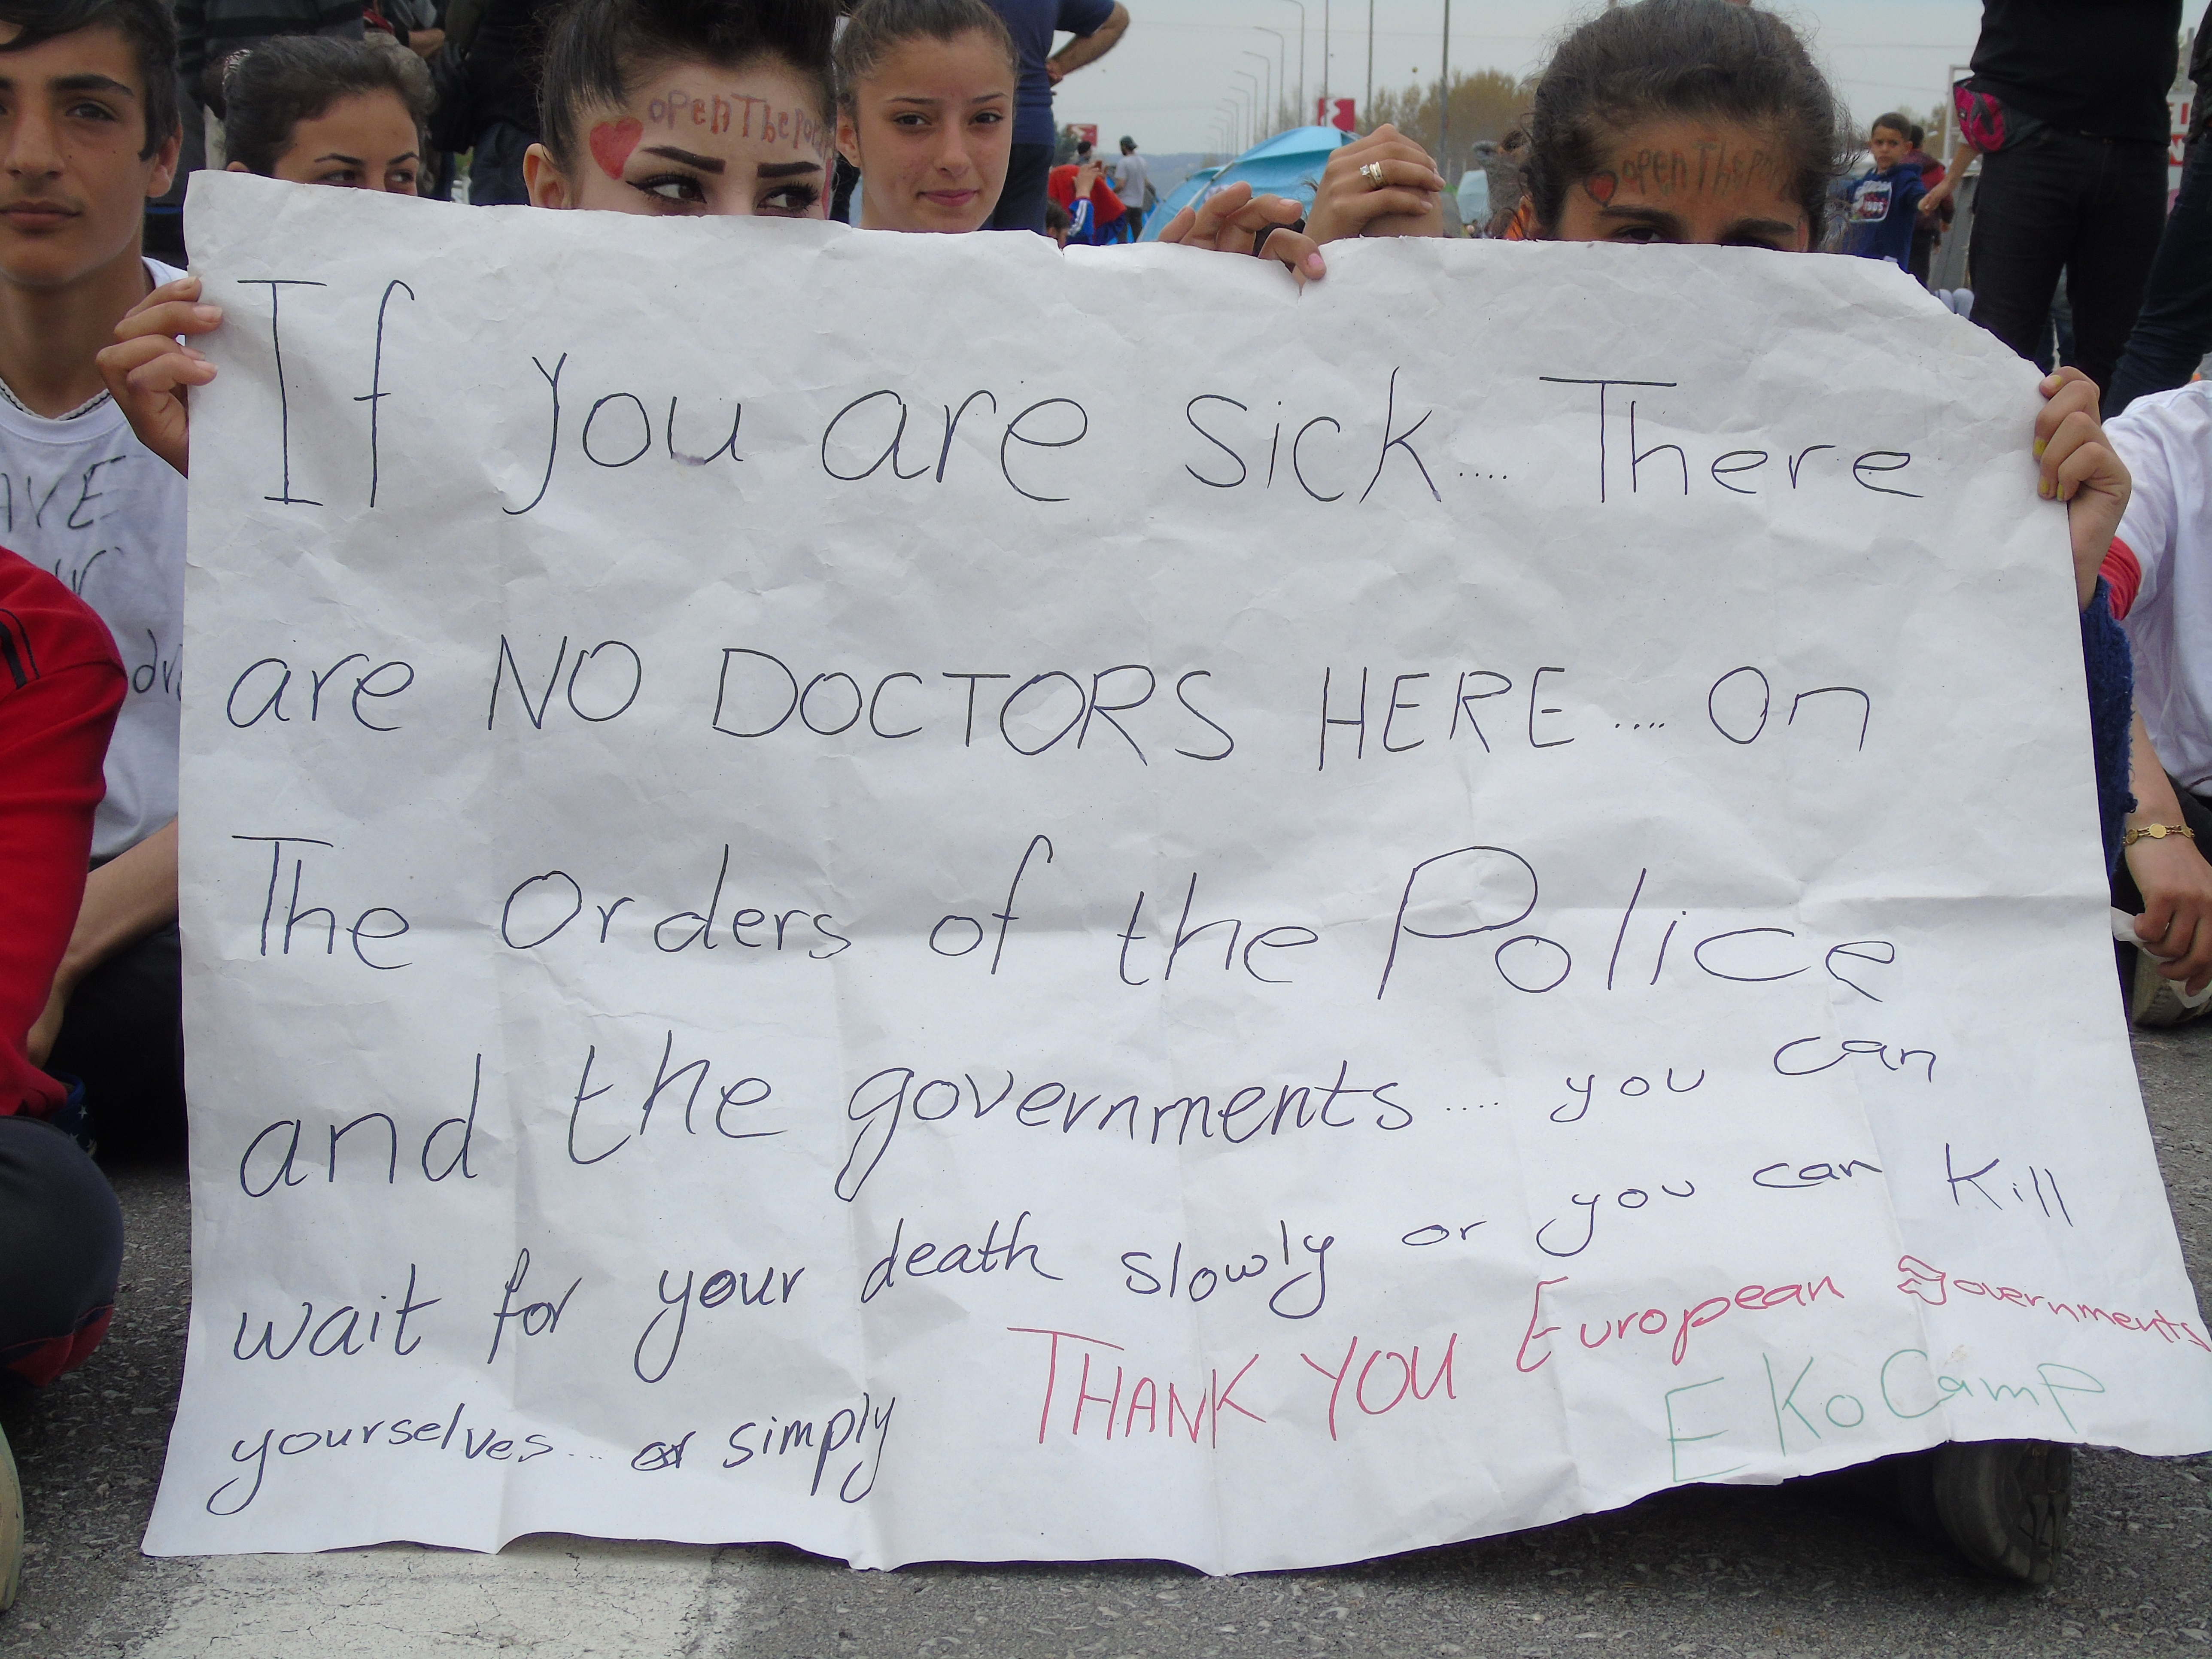 openThe
openThe
If you are sick.... There
are NO DOCTORS HERE .... On
The Orders of the Police
and the governments .... you can
wait for your death slowly or you can kill
yourselves... or simply THANK YOU European governments
EKO Camp